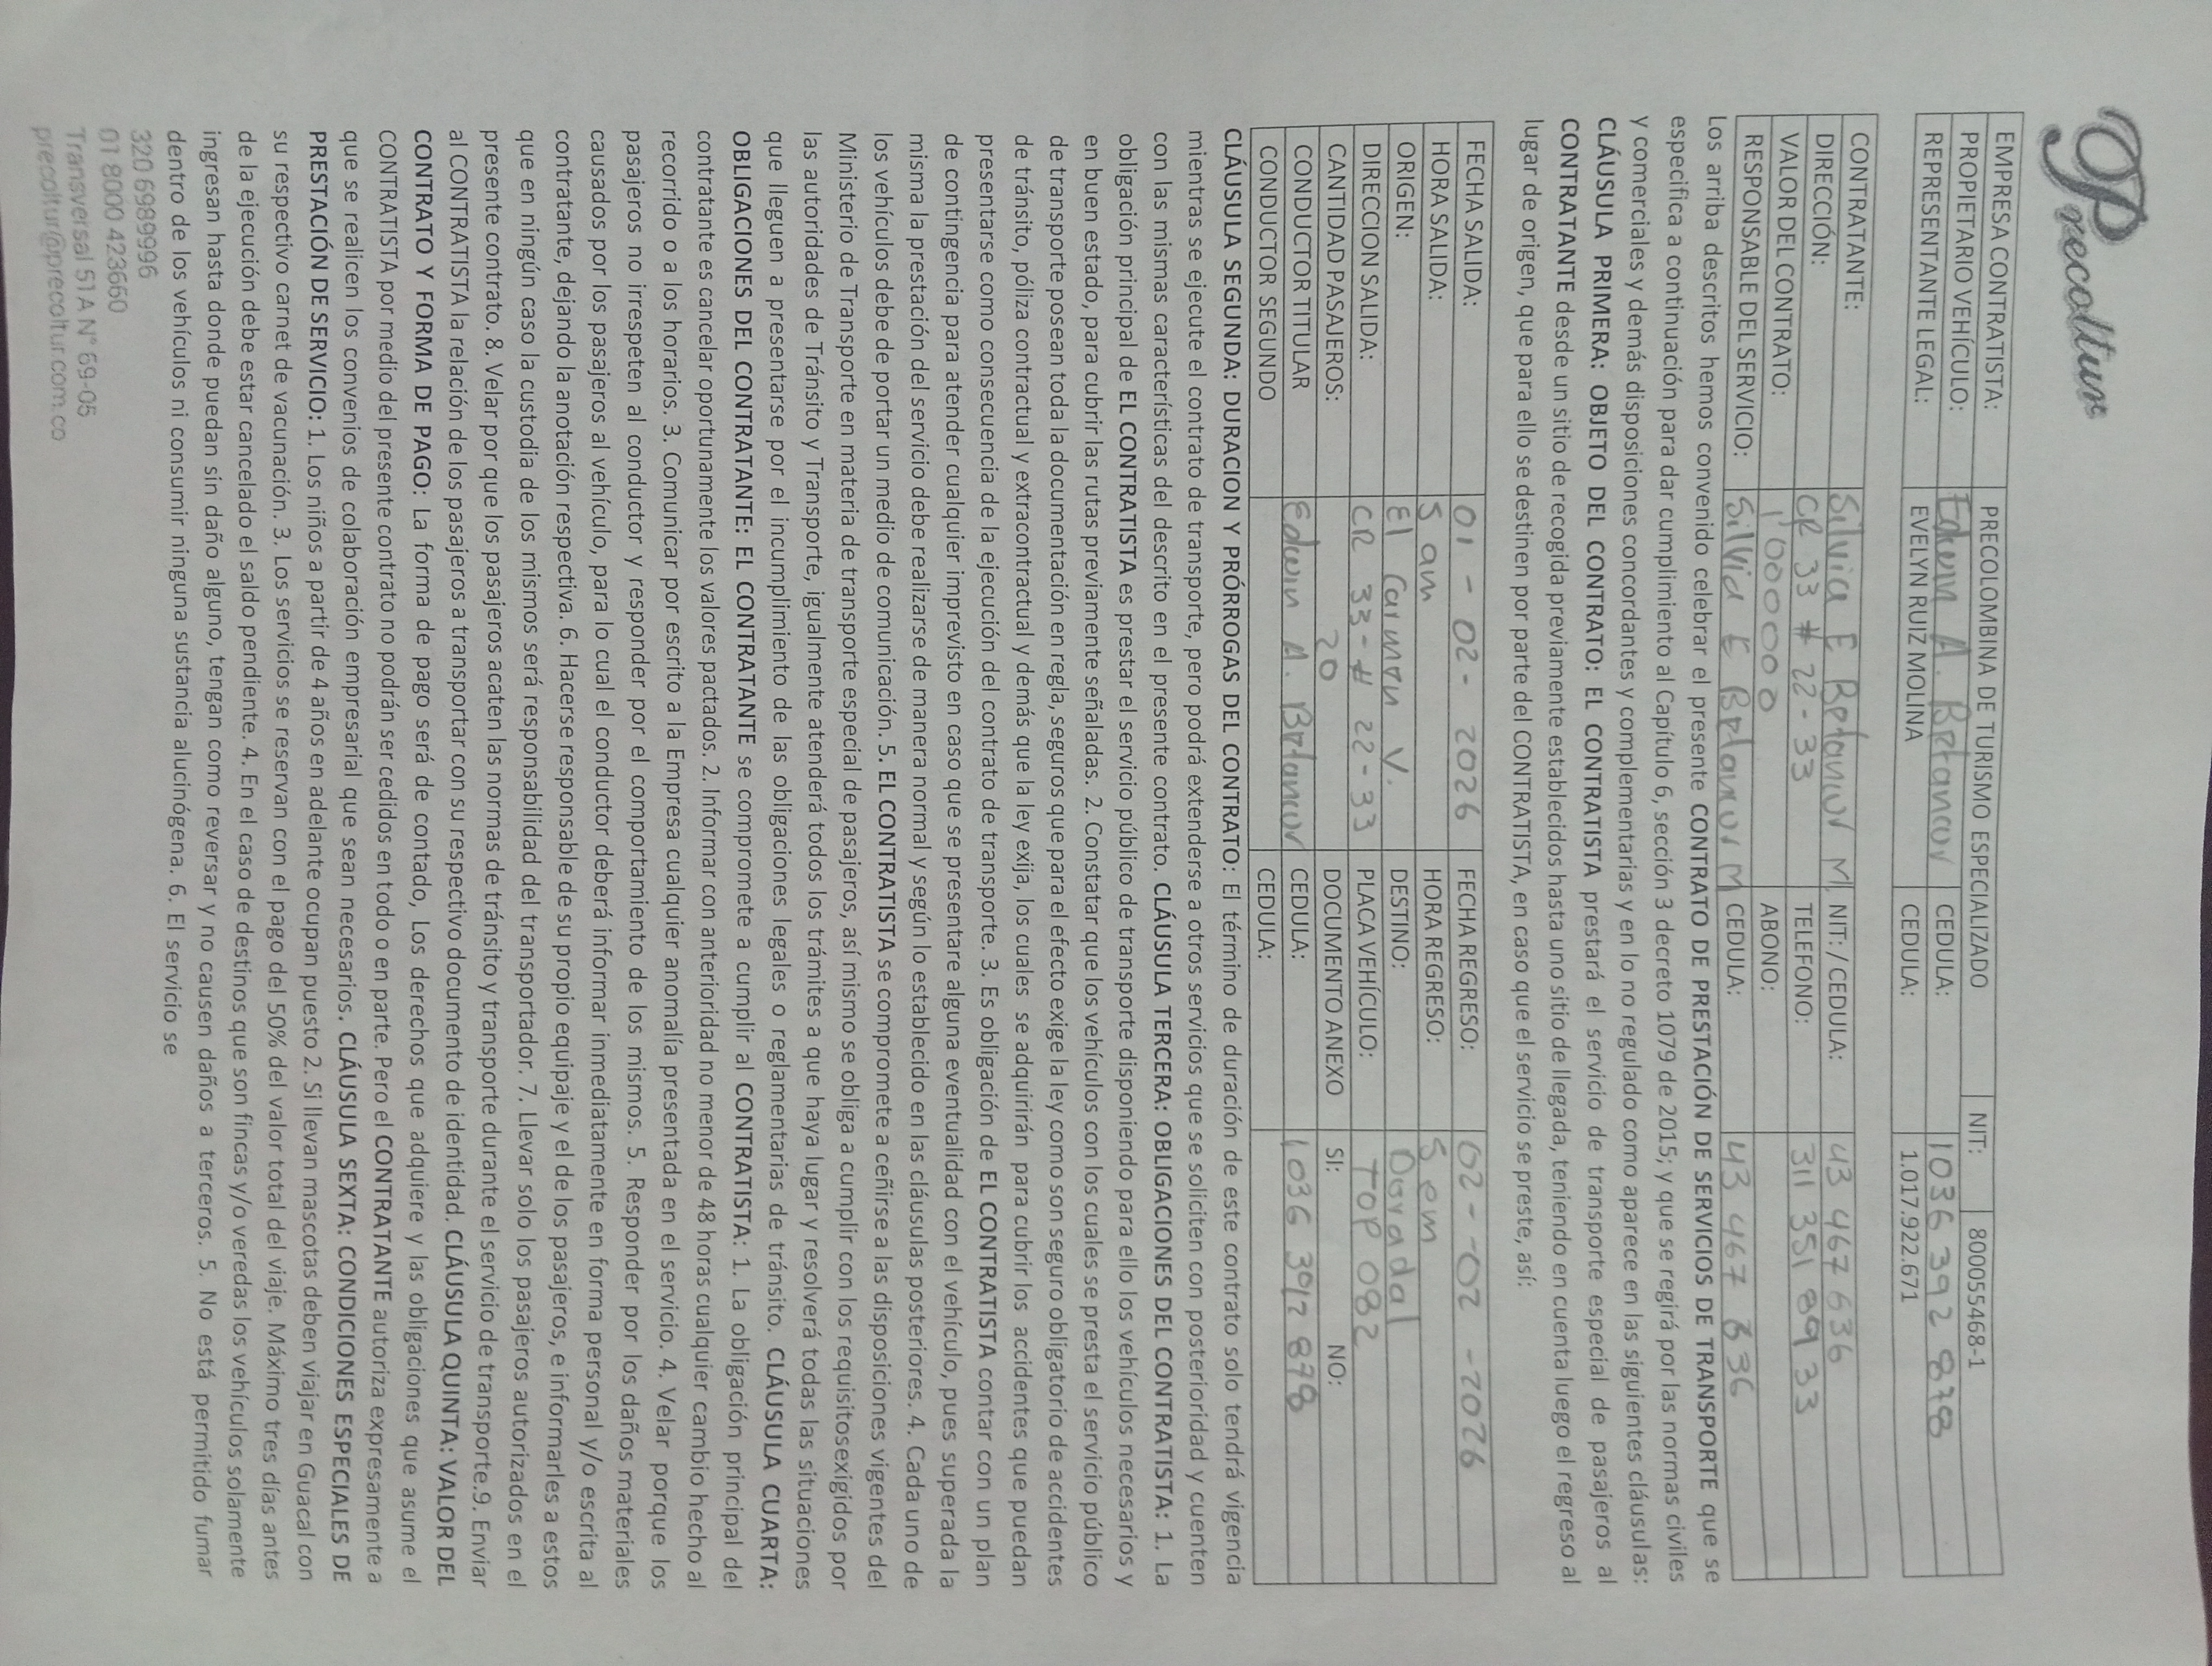 Precoltur
EMPRESA CONTRATISTA: PRECOLOMBINA DE TURISMO ESPECIALIZADO NIT: 800055468-1
PROPIETARIO VEHÍCULO: Edwin A. Betancur CEDULA: 1036 392 878
REPRESENTANTE LEGAL: EVELYN RUIZ MOLINA CEDULA: 1.017.922.671
CONTRATANTE: Silvia E Betancur M. NIT: / CEDULA: 43 467 636
DIRECCIÓN: CR 33 # 22-33 TELEFONO: 311 351 89 33
VALOR DEL CONTRATO: 1'000000 ABONO:
RESPONSABLE DEL SERVICIO: Silvia E Betancur M CEDULA: 43 467 636
Los arriba descritos hemos convenido celebrar el presente CONTRATO DE PRESTACIÓN DE SERVICIOS DE TRANSPORTE que se
especifica a continuación para dar cumplimiento al Capítulo 6, sección 3 decreto 1079 de 2015; y que se regirá por las normas civiles
y comerciales y demás disposiciones concordantes y complementarias y en lo no regulado como aparece en las siguientes cláusulas:
CLÁUSULA PRIMERA: OBJETO DEL CONTRATO: EL CONTRATISTA prestará el servicio de transporte especial de pasajeros al
CONTRATANTE desde un sitio de recogida previamente establecidos hasta uno sitio de llegada, teniendo en cuenta luego el regreso al
lugar de origen, que para ello se destinen por parte del CONTRATISTA, en caso que el servicio se preste, así:
FECHA SALIDA: 01-02-2026 FECHA REGRESO: 02--02-2026
HORA SALIDA: 5 am HORA REGRESO: 5 pm
ORIGEN: El Carmen V. DESTINO: Doradal
DIRECCION SALIDA: CR 33-# 22-33 PLACA VEHÍCULO: TOP 082
CANTIDAD PASAJEROS: 20 DOCUMENTO ANEXO SI: NO:
CONDUCTOR TITULAR Edwin A. Betancur CEDULA: 1036 392 878
CONDUCTOR SEGUNDO CEDULA:
CLÁUSULA SEGUNDA: DURACION Y PRÓRROGAS DEL CONTRATO: El término de duración de este contrato solo tendrá vigencia
mientras se ejecute el contrato de transporte, pero podrá extenderse a otros servicios que se soliciten con posterioridad y cuenten
con las mismas características del descrito en el presente contrato. CLÁUSULA TERCERA: OBLIGACIONES DEL CONTRATISTA: 1. La
obligación principal de EL CONTRATISTA es prestar el servicio público de transporte disponiendo para ello los vehículos necesarios y
en buen estado, para cubrir las rutas previamente señaladas. 2. Constatar que los vehículos con los cuales se presta el servicio público
de transporte posean toda la documentación en regla, seguros que para el efecto exige la ley como son seguro obligatorio de accidentes
de tránsito, póliza contractual y extracontractual y demás que la ley exija, los cuales se adquirirán para cubrir los accidentes que puedan
presentarse como consecuencia de la ejecución del contrato de transporte. 3. Es obligación de EL CONTRATISTA contar con un plan
de contingencia para atender cualquier imprevisto en caso que se presentare alguna eventualidad con el vehículo, pues superada la
misma la prestación del servicio debe realizarse de manera normal y según lo establecido en las cláusulas posteriores. 4. Cada uno de
los vehículos debe de portar un medio de comunicación. 5. EL CONTRATISTA se compromete a ceñirse a las disposiciones vigentes del
Ministerio de Transporte en materia de transporte especial de pasajeros, así mismo se obliga a cumplir con los requisitosexigidos por
las autoridades de Tránsito y Transporte, igualmente atenderá todos los trámites a que haya lugar y resolverá todas las situaciones
que lleguen a presentarse por el incumplimiento de las obligaciones legales o reglamentarias de tránsito. CLÁUSULA CUARTA:
OBLIGACIONES DEL CONTRATANTE: EL CONTRATANTE se compromete a cumplir al CONTRATISTA: 1. La obligación principal del
contratante es cancelar oportunamente los valores pactados. 2. Informar con anterioridad no menor de 48 horas cualquier cambio hecho al
recorrido o a los horarios. 3. Comunicar por escrito a la Empresa cualquier anomalía presentada en el servicio. 4. Velar porque los
pasajeros no irrespeten al conductor y responder por el comportamiento de los mismos. 5. Responder por los daños materiales
causados por los pasajeros al vehículo, para lo cual el conductor deberá informar inmediatamente en forma personal y/o escrita al
contratante, dejando la anotación respectiva. 6. Hacerse responsable de su propio equipaje y el de los pasajeros, e informarles a estos
que en ningún caso la custodia de los mismos será responsabilidad del transportador. 7. Llevar solo los pasajeros autorizados en el
presente contrato. 8. Velar por que los pasajeros acaten las normas de tránsito y transporte durante el servicio de transporte.9. Enviar
al CONTRATISTA la relación de los pasajeros a transportar con su respectivo documento de identidad. CLÁUSULA QUINTA: VALOR DEL
CONTRATO Y FORMA DE PAGO: La forma de pago será de contado, Los derechos que adquiere y las obligaciones que asume el
CONTRATISTA por medio del presente contrato no podrán ser cedidos en todo o en parte. Pero el CONTRATANTE autoriza expresamente a
que se realicen los convenios de colaboración empresarial que sean necesarios. CLÁUSULA SEXTA: CONDICIONES ESPECIALES DE
PRESTACIÓN DE SERVICIO: 1. Los niños a partir de 4 años en adelante ocupan puesto 2. Si llevan mascotas deben viajar en Guacal con
su respectivo carnet de vacunación. 3. Los servicios se reservan con el pago del 50% del valor total del viaje. Máximo tres días antes
de la ejecución debe estar cancelado el saldo pendiente. 4. En el caso de destinos que son fincas y/o veredas los vehículos solamente
ingresan hasta donde puedan sin daño alguno, tengan como reversar y no causen daños a terceros. 5. No está permitido fumar
dentro de los vehículos ni consumir ninguna sustancia alucinógena. 6. El servicio se
320 6989996
01 8000 423660
Transversal 51 A N° 69-05
precoltur@precoltur.com.co